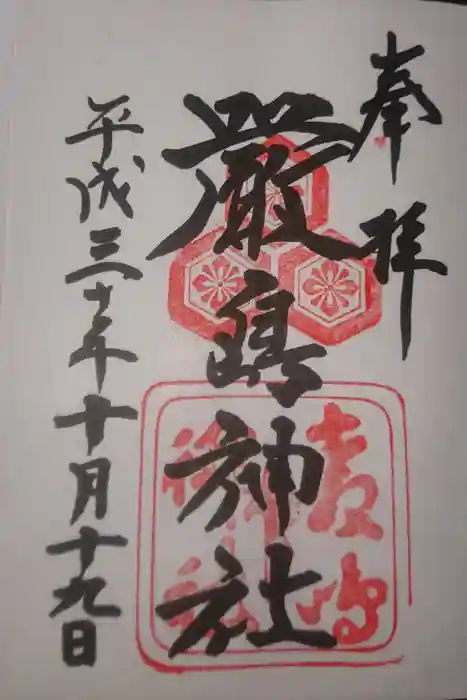 奉拝
厳島神社
平成三十年十月十九日
厳嶋
神社